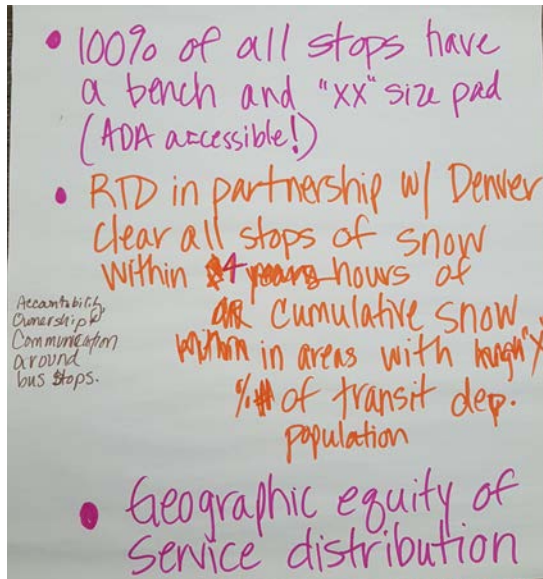 • 100% of all stops have
a bench and "XX" size pad
(ADA accessible!)
• RTD in partnership w/ Denver
clear all stops of snow
within 4 years hours of
cumulative snow
within in areas with high "X
% # of transit dep.
population
Accountability
Ownership &
Communication
around
bus stops.
• Geographic equity of
service distribution